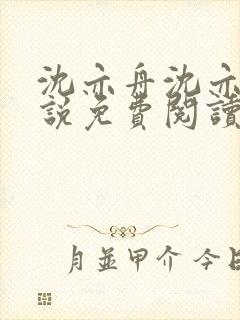 沈亦舟沈亦
說免費閱讀
月並甲介 今日